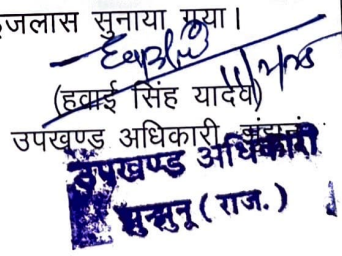 इजलास सुनाया गया।
(हवाई सिंह यादव)
उपखण्ड अधिकारी झुंझुनूं
उपखण्ड अधिकारी
झुन्झुनू (राज.)